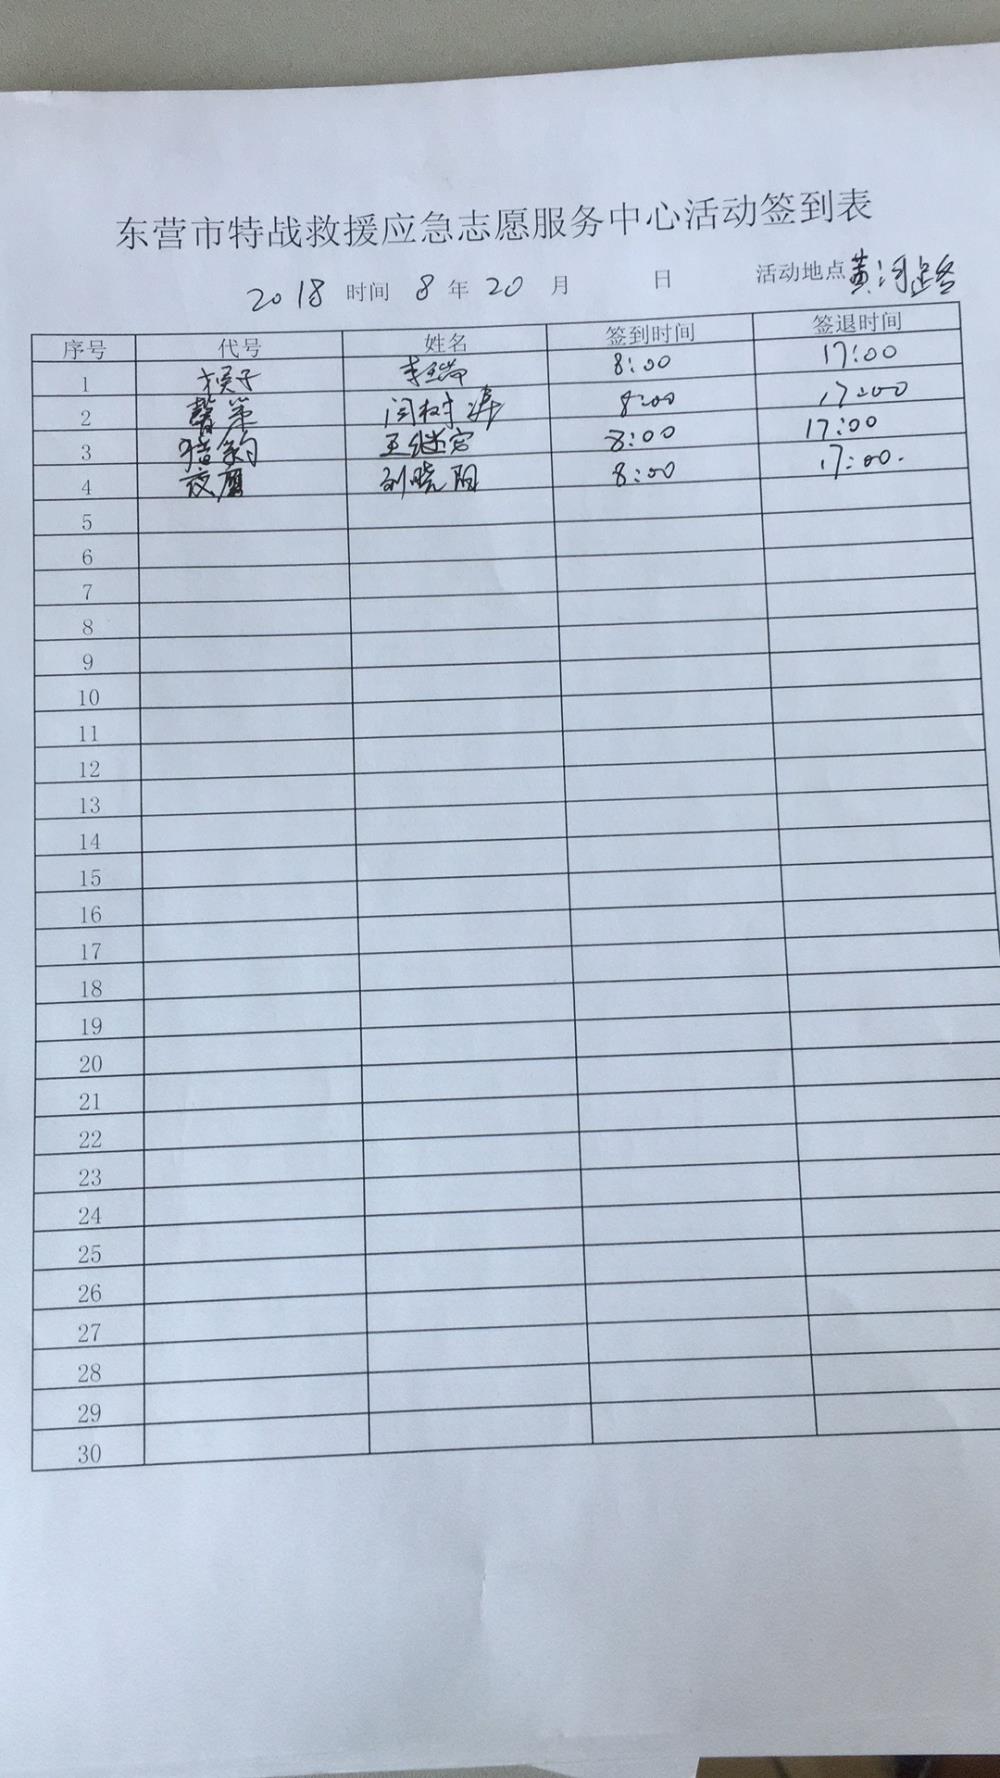 东营市特战救援应急志愿服务中心活动签到表
2018 时间 8 年 20 月 日 活动地点 黄河路
序号 代号 姓名 签到时间 签退时间
1 8:00 17:00
2 闫树 8:00 17:00
3 猎豹 王继 8:00 17:00
4 夜鹰 刘晓阳 8:00 17:00.
5
6
7
8
9
10
11
12
13
14
15
16
17
18
19
20
21
22
23
24
25
26
27
28
29
30